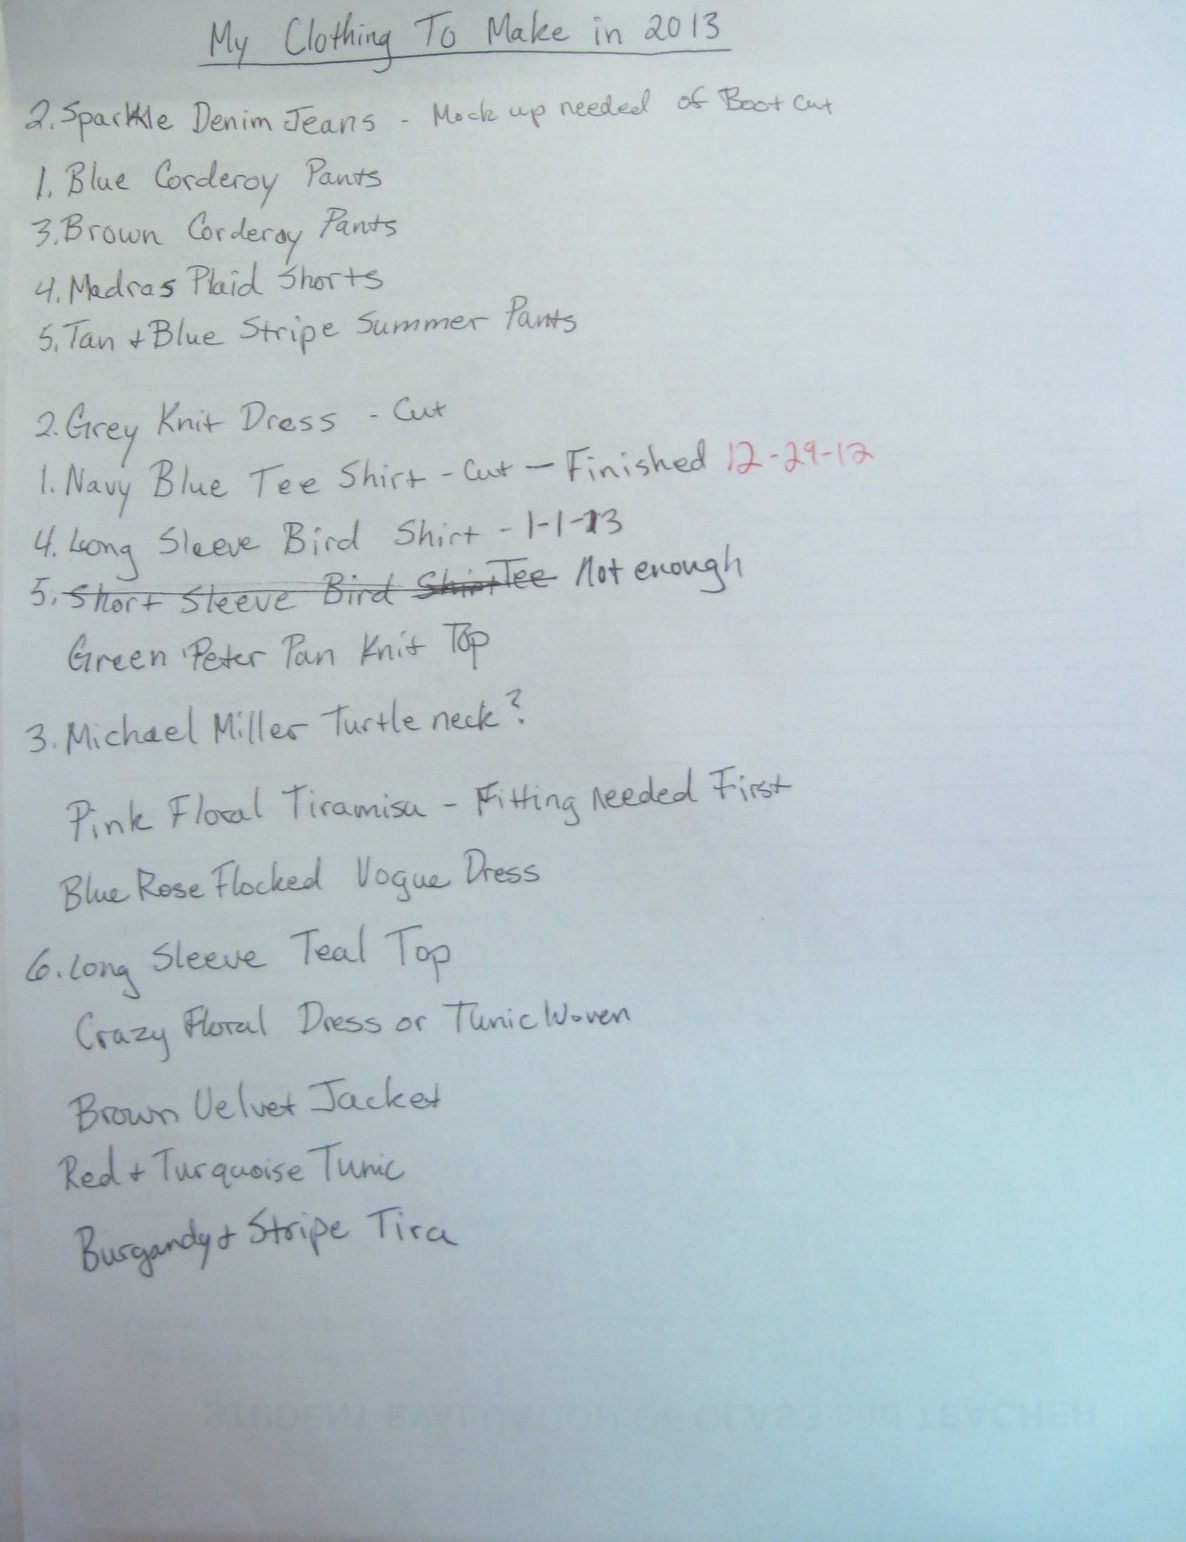 My Clothing To Make in 2013
2. Sparkle Denim Jeans - Mock up needed of Boot cut
1. Blue Corderoy Pants
3. Brown Corderoy Pants
4. Madras Plaid Shorts
5. Tan + Blue Stripe Summer Pants
2. Grey Knit Dress - Cut
1. Navy Blue Tee Shirt - Cut - Finished 12-29-12
4. Long Sleeve Bird Shirt - 1-1-13
5. Short Sleeve Bird Shirt Tee Not enough
Green Peter Pan Knit Top
3. Michael Miller Turtle neck?
Pink Floral Tiramisu - Fitting needed First
Blue Rose Flocked Vogue Dress
6. Long Sleeve Teal Top
Crazy Floral Dress or Tunic Woven
Brown Velvet Jacket
Red + Turquoise Tunic
Burgandy + Stripe Tira
STUDENT EVALUATION OF CLASS and TEACHER